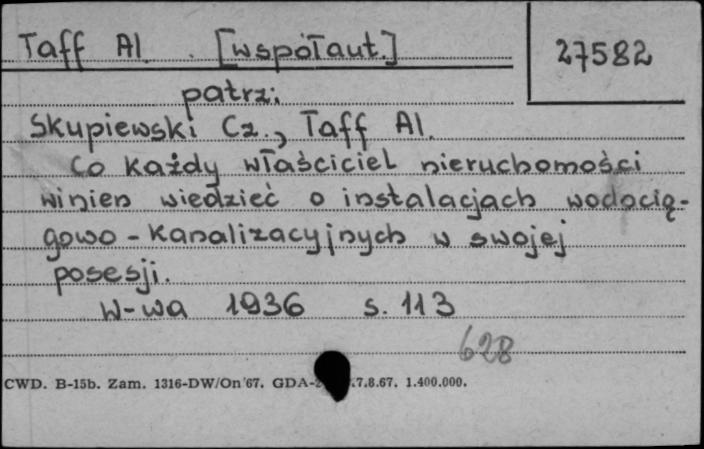 Taff Al. [współaut.]
27582
patrz:
Skupiewski Cz., Taff Al.
Co każdy właściciel nieruchomości
winien wiedzieć o instalacjach wodocią-
gowo-kanalizacyjnych w swojej
posesji.
W-wa 1936 s. 113
628
CWD. B-15b. Zam. 1316-DW/On/67. GDA- .7.8.67. 1.400.000.